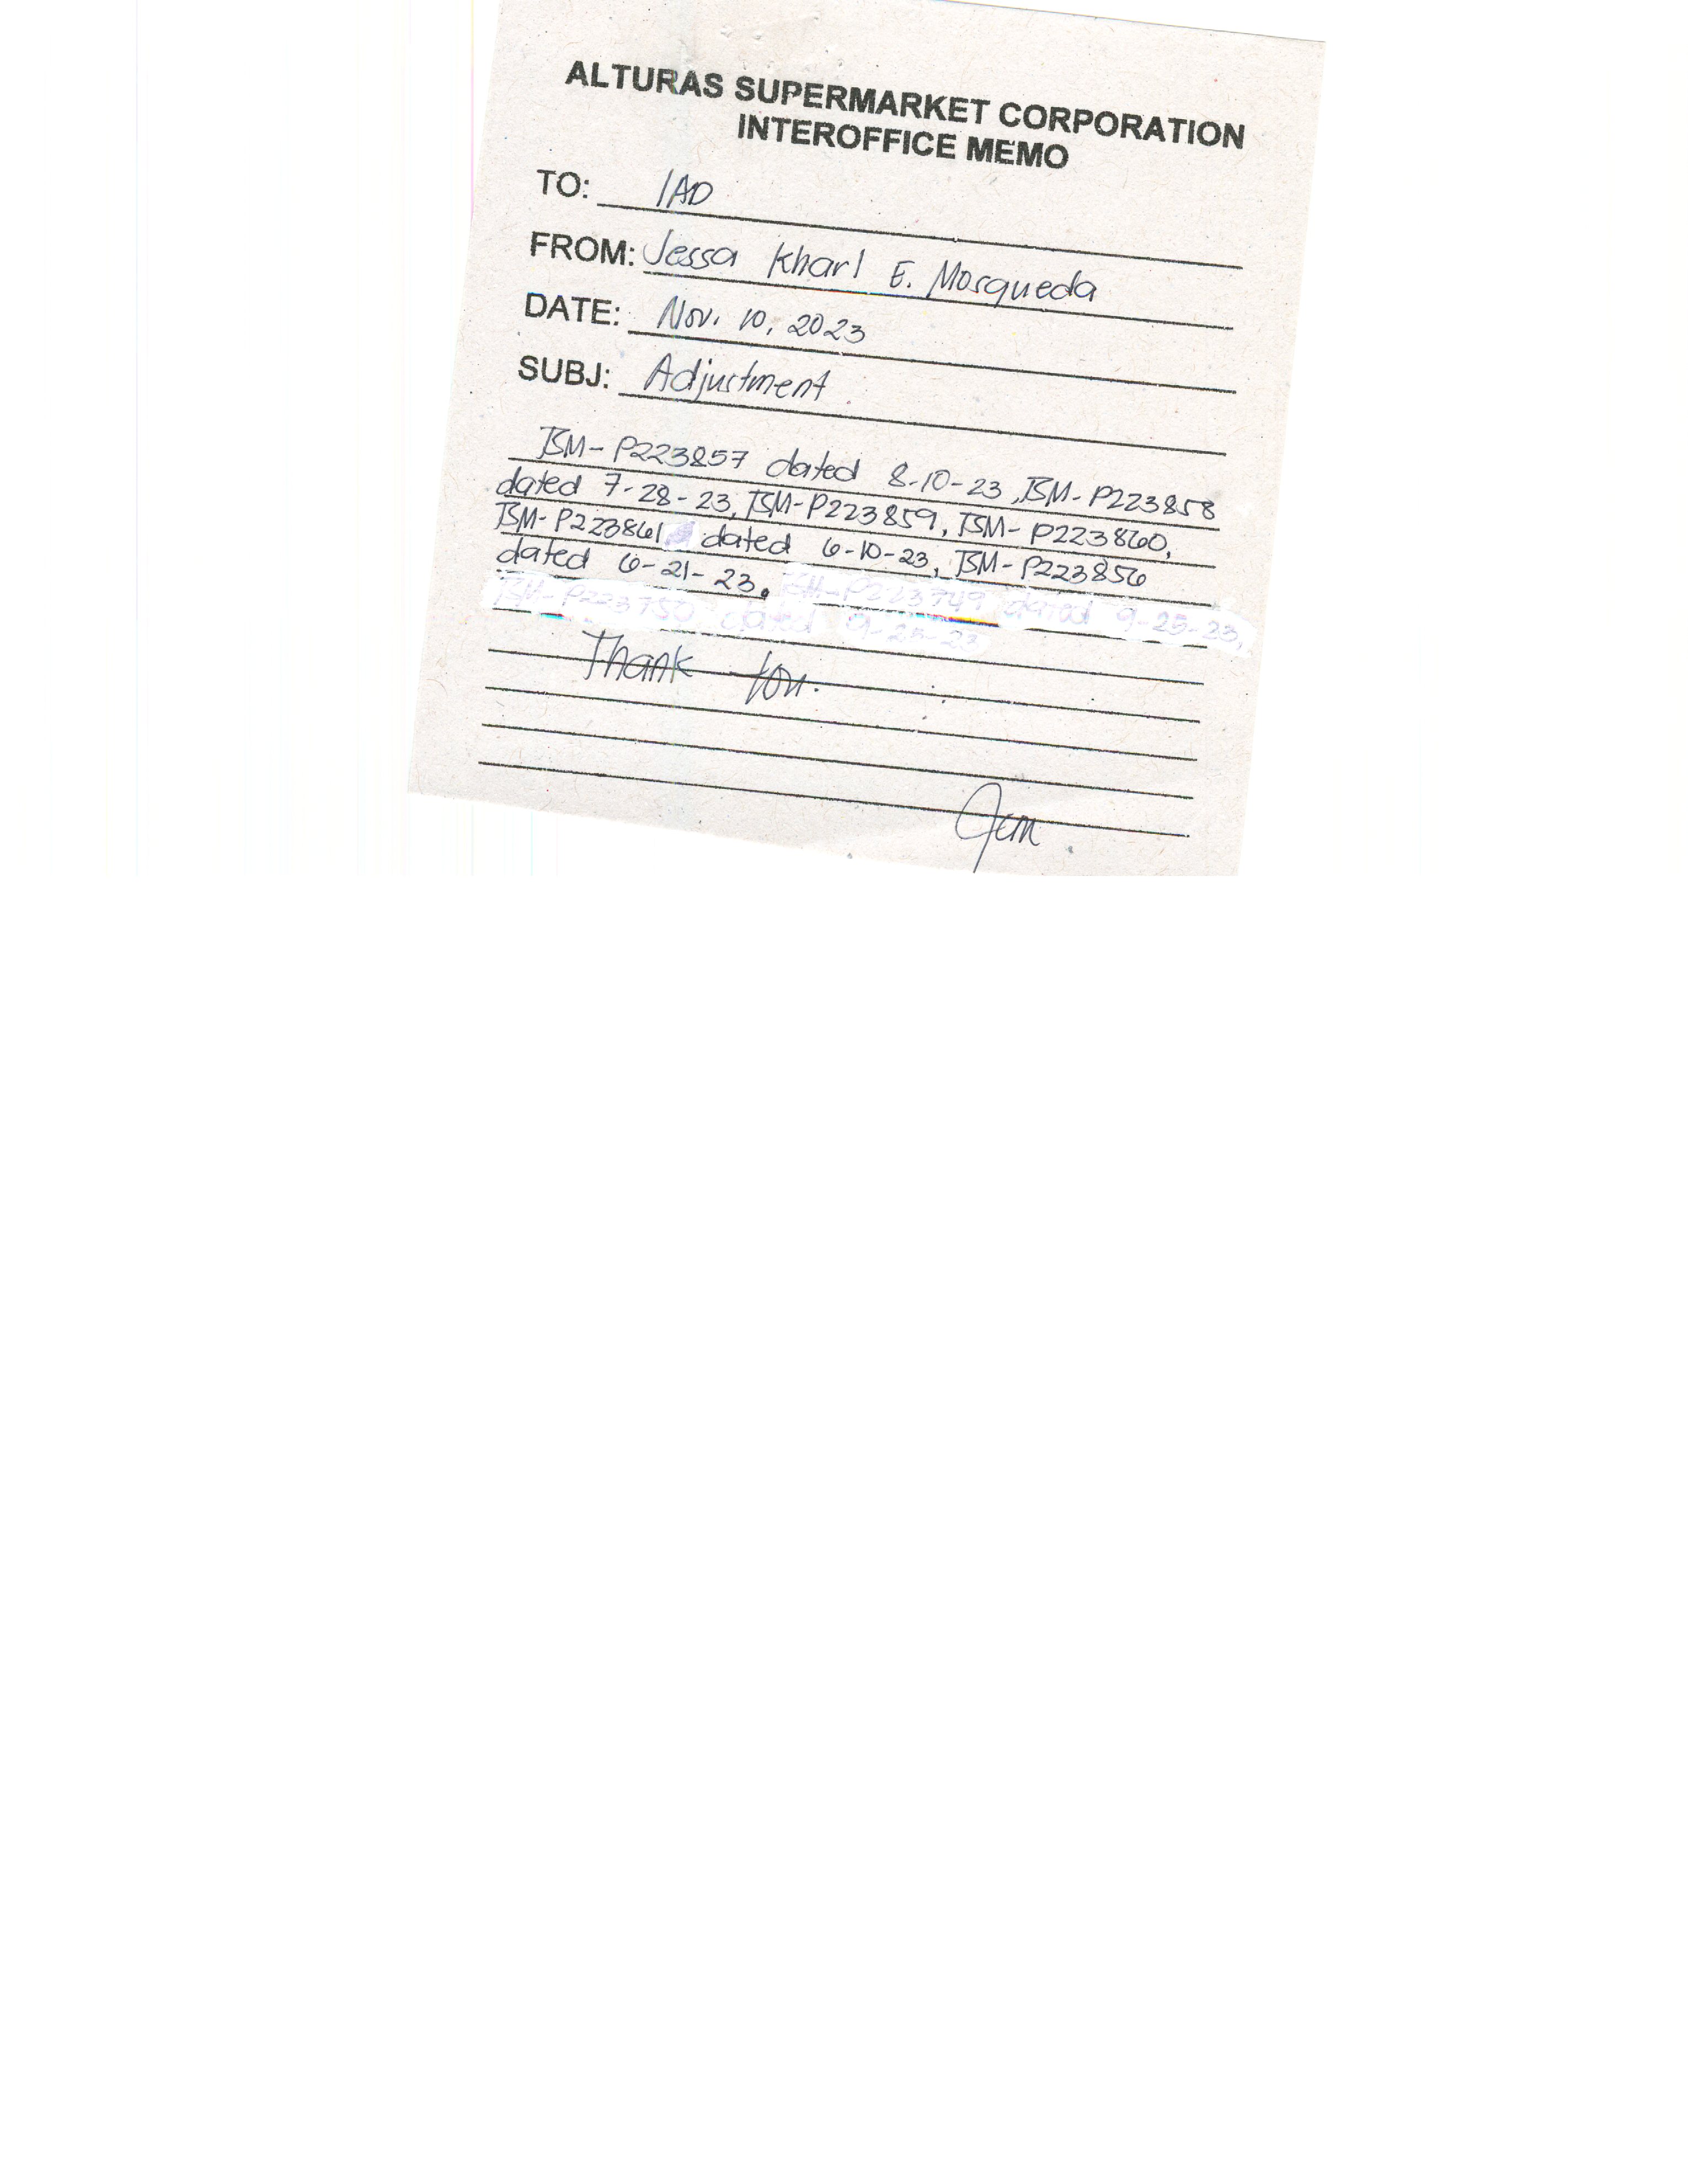 ALTURAS SUPERMARKET CORPORATION
INTEROFFICE MEMO
TO: IAD
FROM: Jessa Kharl E. Mosqueda
DATE: Nov. 10, 2023
SUBJ: Adjustment
TSM-P223857 dated 8-10-23, TSM-P223858
dated 7-28-23, TSM-P223859, TSM-P223860,
TSM-P223861 dated 6-10-23, TSM-P223856
dated 6-21-23.
dated 9-25-23,
dated 9-25-23
Thank You.